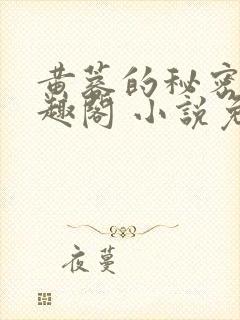 黄蓉的秘密
趣閣 小說免
夜蔓